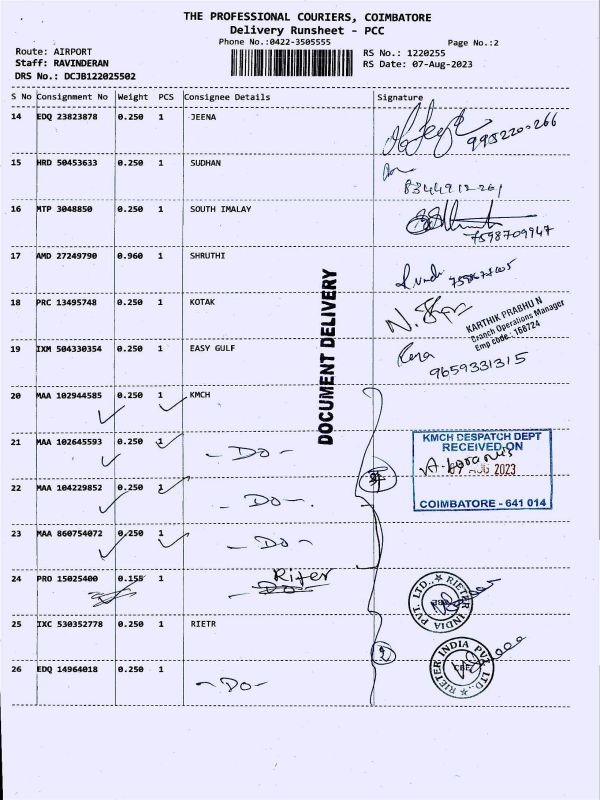 THE PROFESSIONAL COURIERS, COIMBATORE
Delivery Runsheet - PCC
Phone No.:0422-3505555
Page No.:2
Route: AIRPORT
RS No.: 1220255
Staff: RAVINDERAN
RS Date: 07-Aug-2023
DRS No.: DCJB122025502
S No Consignment No Weight PCS Consignee Details Signature
14 EDQ 23823878 0.250 1 JEENA
15 HRD 50453633 0.250 1 SUDHAN
16 MTP 3048850 0.250 1 SOUTH IMALAY
7598709947
17 AMD 27249790 0.960 1 SHRUTHI
18 PRC 13495748 0.250 1 KOTAK
KARTHIK PRABHU N
Branch Operations Manager
Emp code.: 168724
19 IXM 504330354 0.250 1 EASY GULF
9659331315
DOCUMENT DELIVERY
20 MAA 102944585 0.250 1 KMCH
21 MAA 102645593 0.250 1 - Do -
KMCH DESPATCH DEPT
RECEIVED ON
AUG 2023
COIMBATORE - 641 014
22 MAA 104229852 0.250 1 - Do -
23 MAA 860754072 0.250 1 - Do -
24 PRO 15025400 0.155 1 Riter
Do
RIETER INDIA PVT. LTD.,
25 IXC 530352778 0.250 1 RIETR
2
RIETER INDIA PVT. LTD.,
CBE
26 EDQ 14964018 0.250 1 - Do -